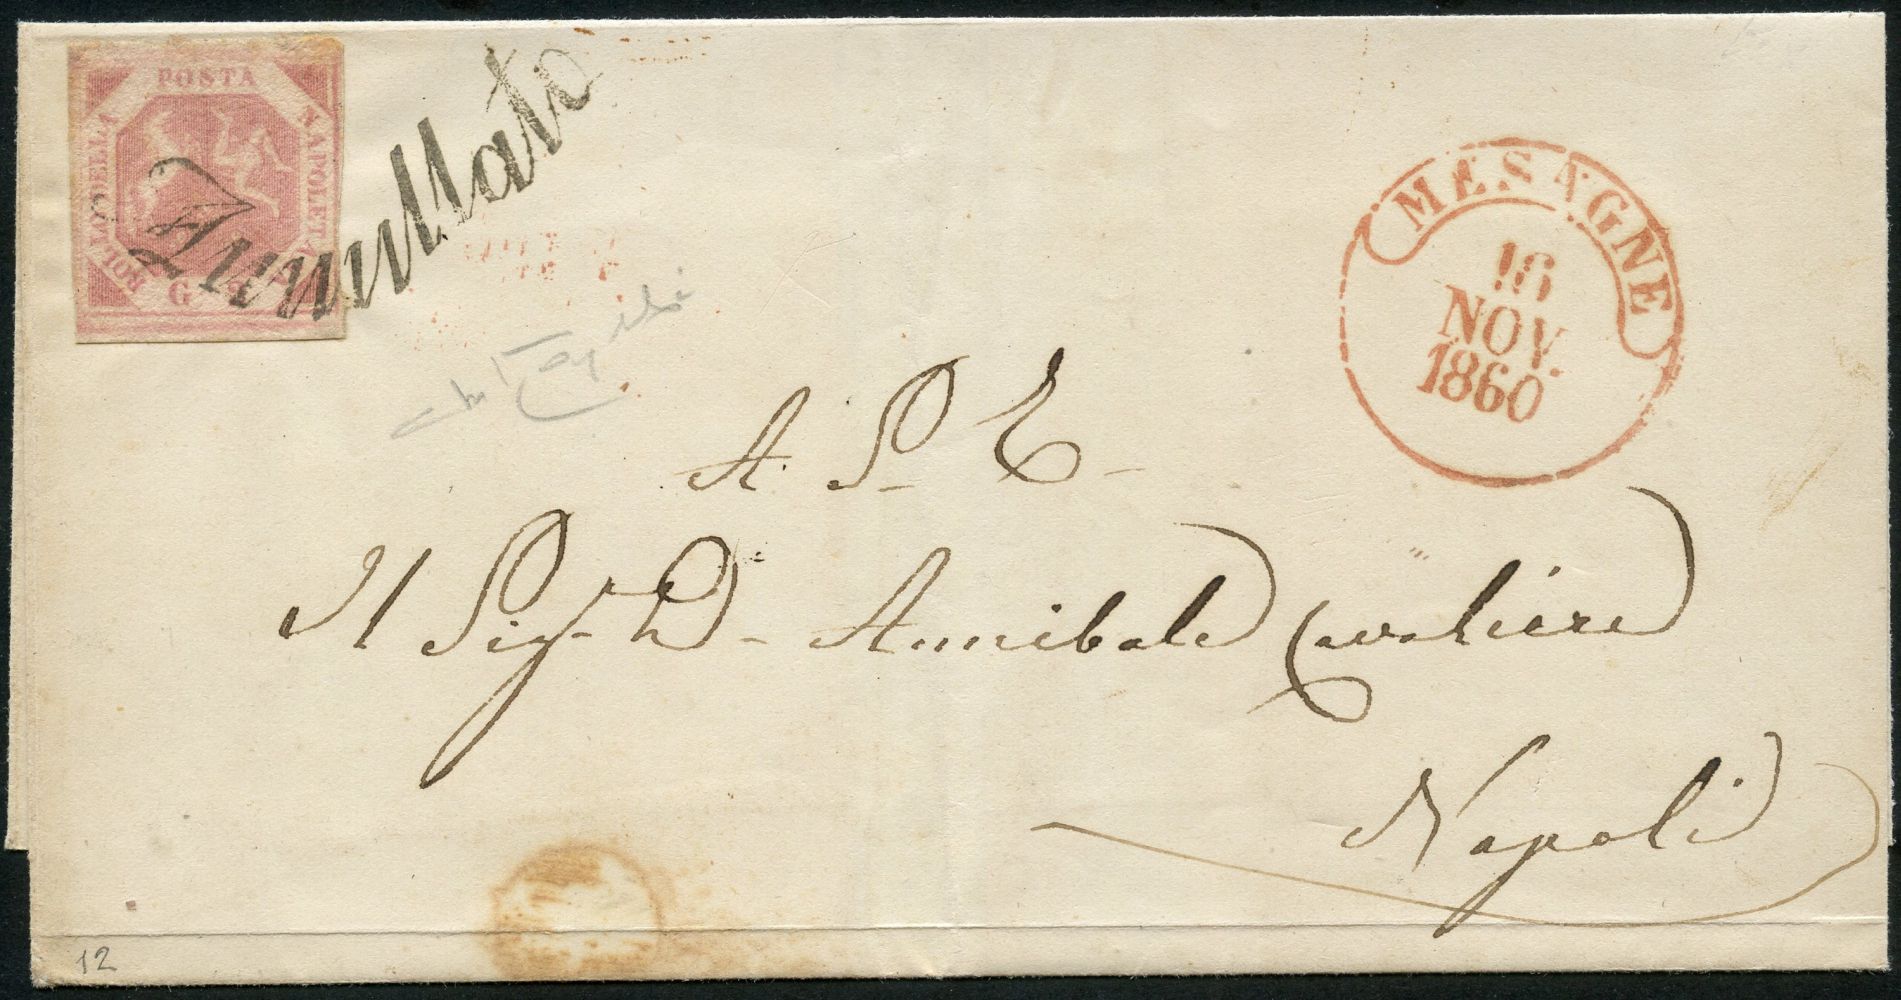 BOLLO DELLA POSTA NAPOLETANA
G
Annullato
MESAGNE
16
NOV.
1860
A. S. E.
Il Sig. D. Annibale Cavaliere
Napoli
12